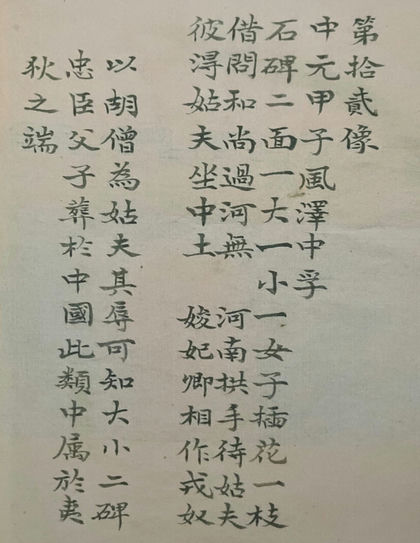 第拾貳像
中元甲子風澤中孚
石碑二面一大一小一女子插花一枝
借問和尚過河無 河南拱手待姑夫
彼淂姑夫坐中土 妃卿相作戎奴
以胡僧為姑夫其辱可知大小二碑
忠臣父子葬於中國此類中属於夷
狄之端